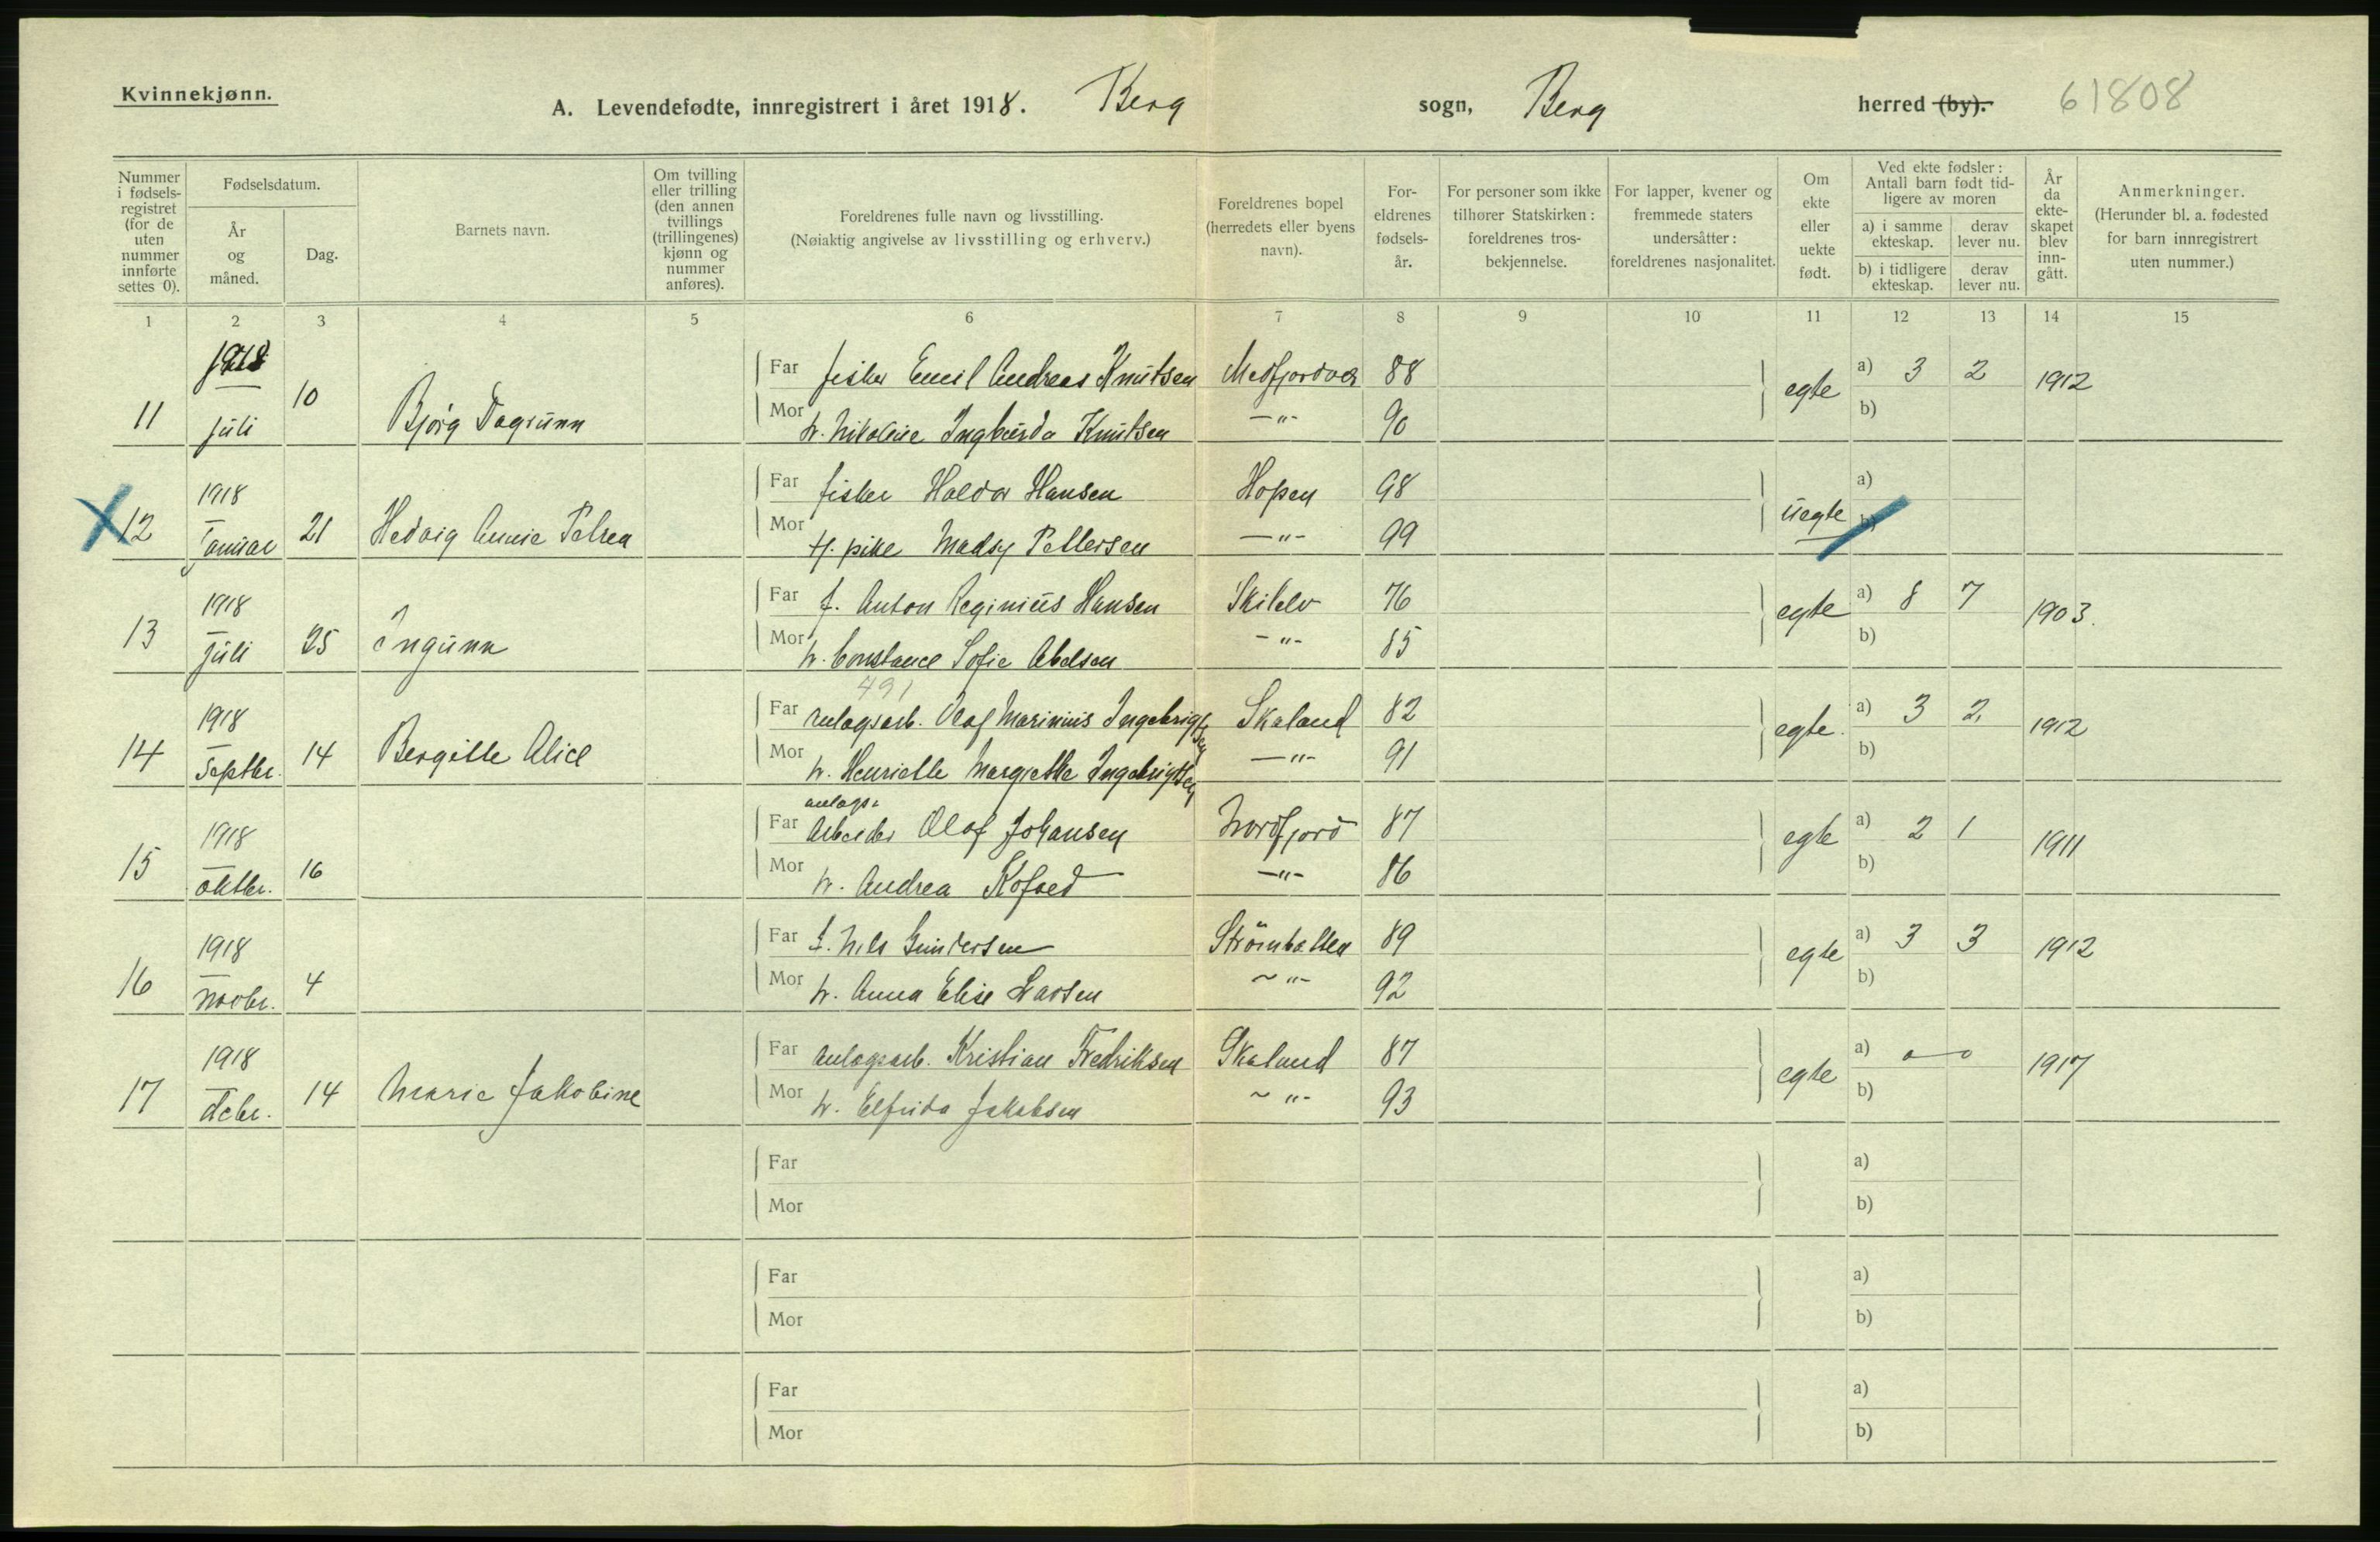 Kvinnekjønn.
A. Levendefødte, innregistrert i året 1918. Berg sogn, Berg herred (by). 61808
Nummer i fødselsregistret (for de uten nummer innførte settes 0).
Fødselsdatum.
År og måned.
Dag.
Barnets navn.
Om tvilling eller trilling (den annen tvillings (trillingenes) kjønn og nummer anføres).
Foreldrenes fulle navn og livsstilling.
(Nøiaktig angivelse av livsstilling og erhverv.)
Foreldrenes bopel (herredets eller byens navn).
Foreldrenes fødselsår.
For personer som ikke tilhører Statskirken: foreldrenes trosbekjennelse.
For lapper, kvener og fremmede staters undersåtter: foreldrenes nasjonalitet.
Om ekte eller uekte født.
Ved ekte fødsler: Antall barn født tidligere av moren
a) i samme ekteskap.
derav lever nu.
b) i tidligere ekteskap.
derav lever nu.
År da ekteskapet blev inngått.
Anmerkninger.
(Herunder bl. a. fødested for barn innregistrert uten nummer.)
1 2 3 4 5 6 7 8 9 10 11 12 13 14 15
11 1918 juli 10 Bjørg Dagrunn
Far fisker Emil Andreas Knutsen Medfjordvær 88 egte a) 3 2 1912
Mor h. Nikoline Ingbørda Knutsen —"— 90 b)
X 12 1918 Januar 21 Hedvig Annie Petrea
Far fisker Haldor Hansen Hopen 98 uegte a)
Mor tj. pike Madsy Pettersen —"— 99 b)
13 1918 juli 25 Ingunn
Far f. Anton Reginius Hansen Skilelv 76 egte a) 8 7 1903.
Mor h. Constance Sofie Abelsen —"— 85 b)
491
14 1918 Septbr. 14 Bergitte Alice
Far anlagsarb. Olaf Marinius Ingebrigtsen Skaland 82 egte. a) 3 2 1912
Mor h. Henriette Margrethe Ingebrigtsen —"— 91 b)
anlags-
15 1918 oktbr. 16
Far Arbeider Olaf Johansen Nordfjord 87 egte a) 2 1 1911
Mor h. Andrea Kofoed —"— 86 b)
16 1918 Novbr. 4
Far f. Nils Gundersen Strömbotten 89 egte a) 3 3 1912
Mor h. Anna Elise Larsen —"— 92 b)
17 1918 Debr. 14 Marie Jakobine
Far anlagsarb. Kristian Fredriksen Skaland 87 egte a) o—o 1917
Mor h. Elfrida Jakobsen —"— 93 b)
Far a)
Mor b)
Far a)
Mor b)
Far a)
Mor b)